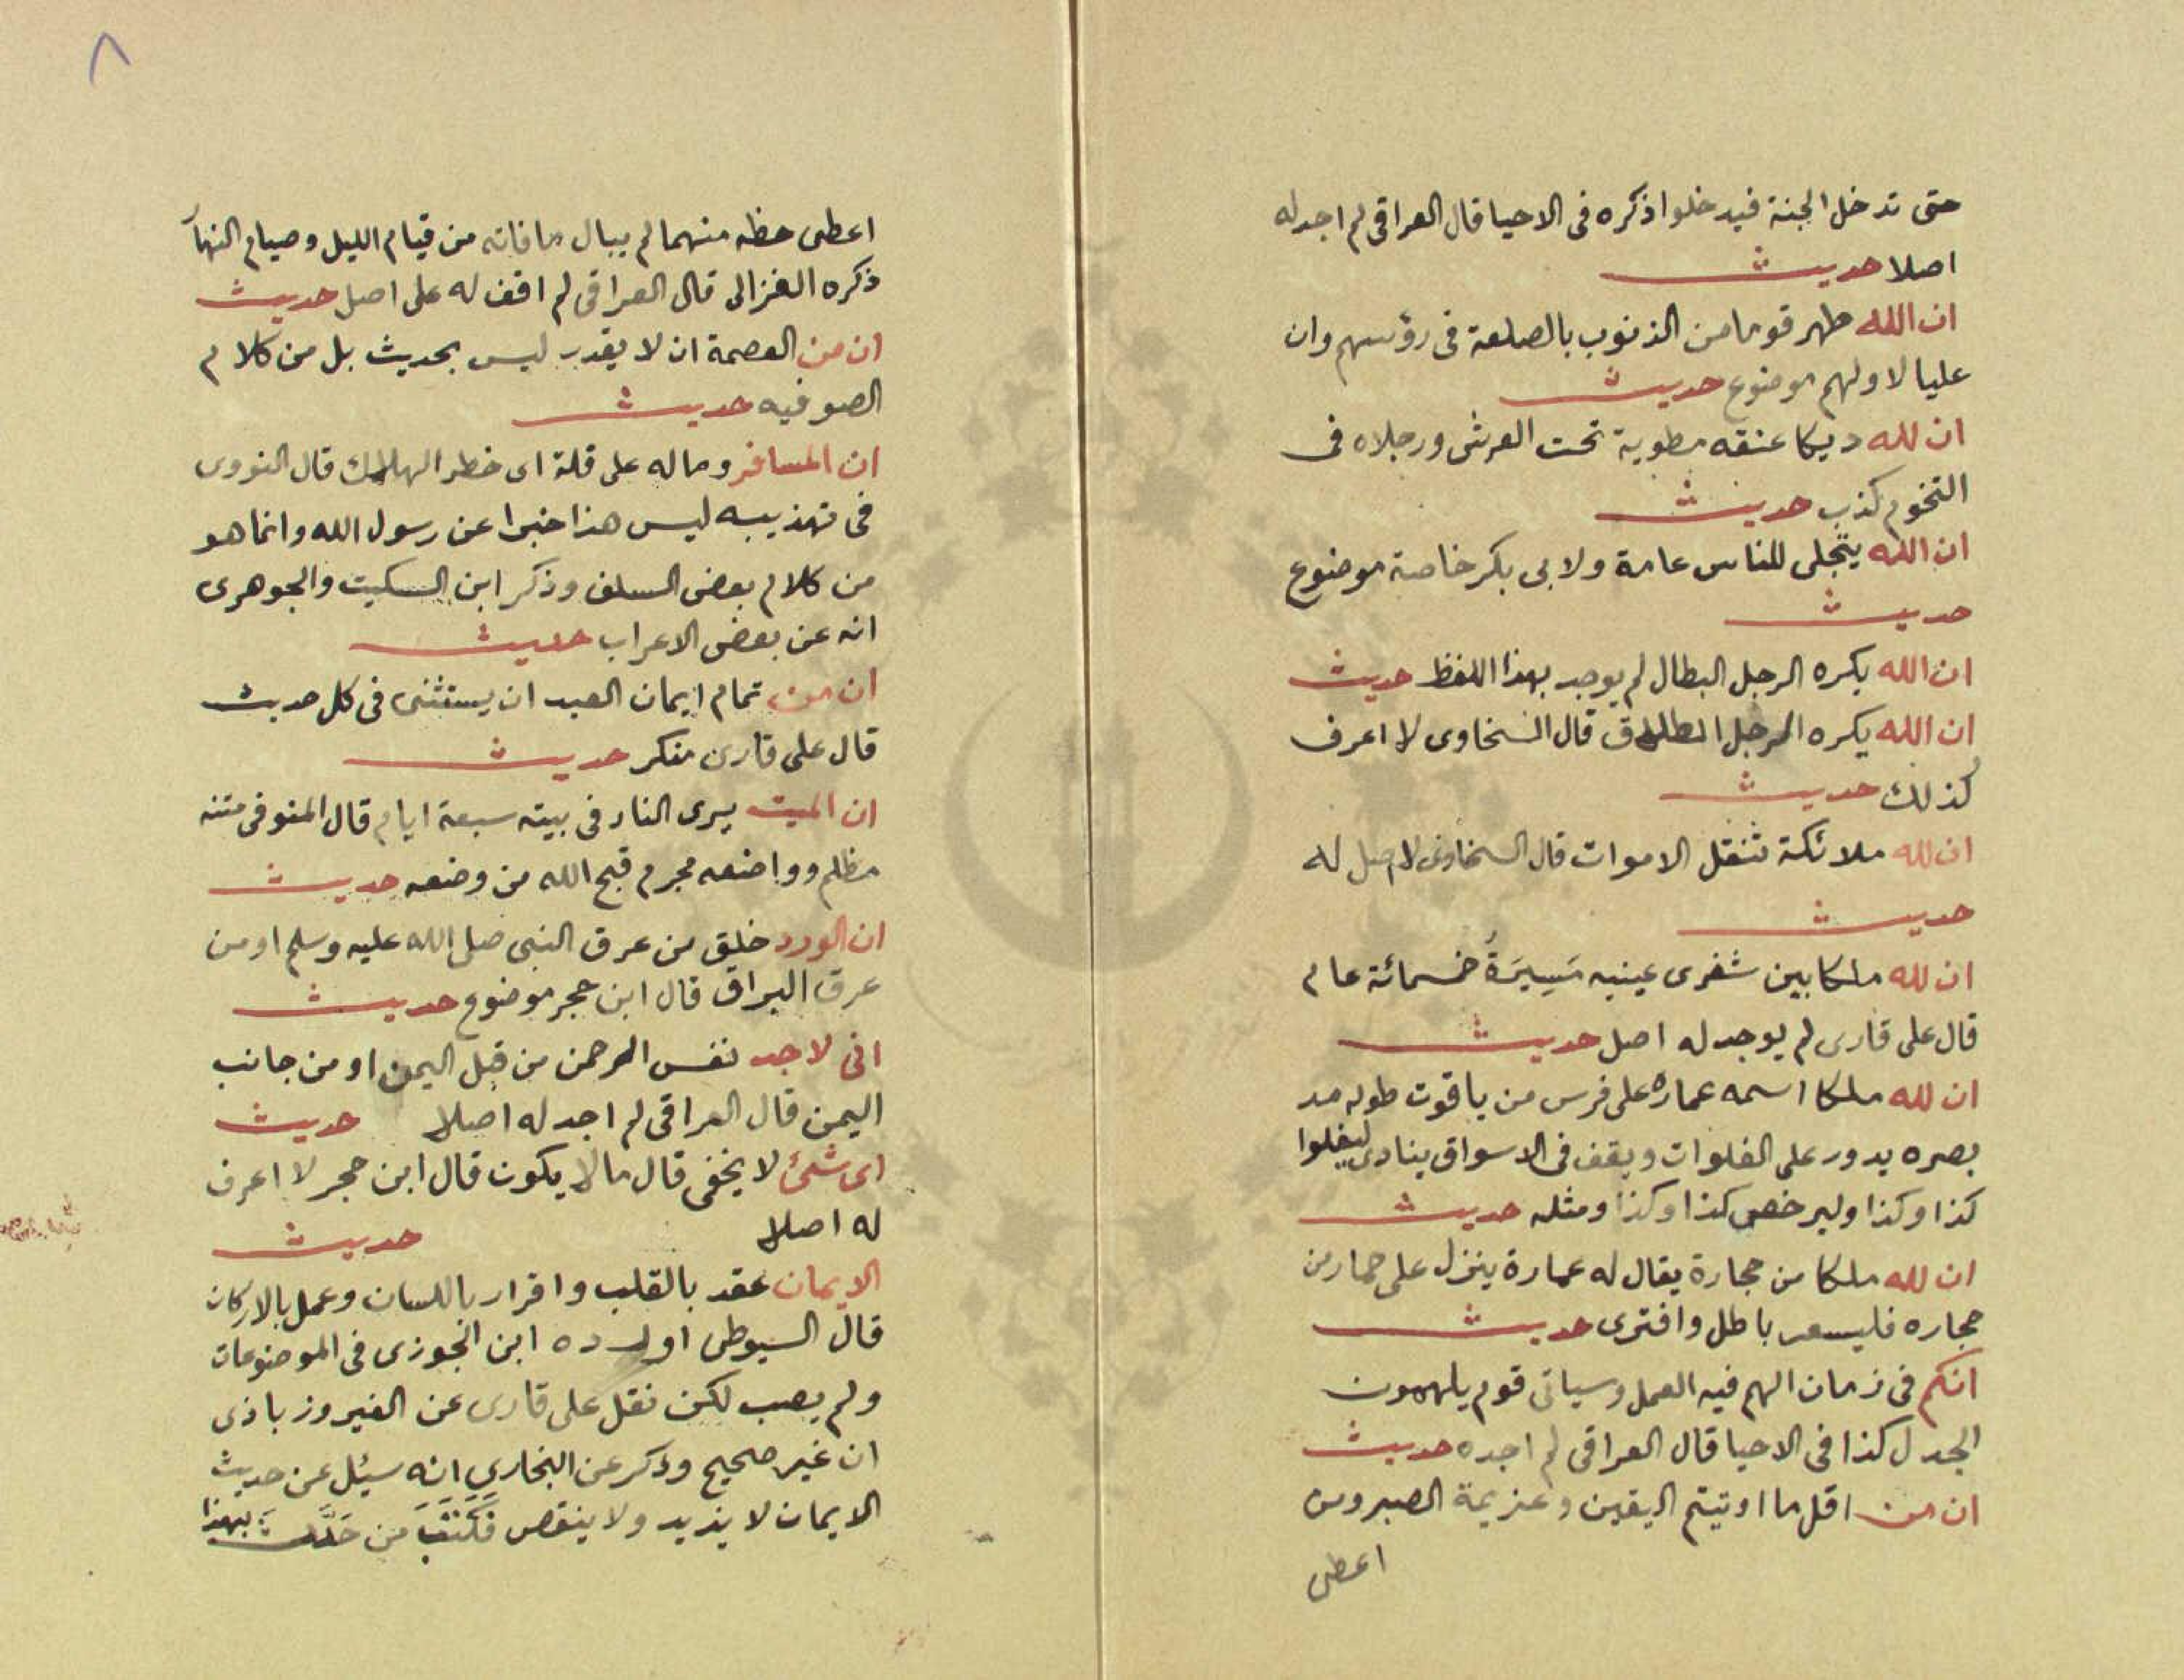 حتى تدخل الجنة فيدخلوا ذكره فى الاحيا قال العراقى لم اجد له
اصلا حديث
ان الله طهر قوما من الذنوب بالصلعة فى رؤسهم وان
عليا لاولهم موضوع حديث
ان لله ديكا عنقه مطوية تحت العرش ورجلاه فى
التخوم كذب حديث
ان الله يتجلى للناس عامة ولابى بكر خاصة موضوع
حديث
ان الله يكره الرجل البطال لم يوجد بهذا اللفظ حديث
ان الله يكره الرجل المطلاق قال السخاوى لا اعرف
كذلك حديث
ان لله ملائكة تنقل الاموات قال السخاوى لا اصل له
حديث
ان لله ملكا بين شفرى عينيه مَسِيرَةُ خمسمائة عام
قال على قارى لم يوجد له اصل حديث
ان لله ملكا اسمه عماره على فرس من ياقوت طوله مد
بصره يدور على الفلوات ويقف فى الاسواق ينادى ليغلوا
كذا وكذا وليرخص كذا وكذا ومثله حديث
ان لله ملكا من حجارة يقال له عمارة ينزل على حمار من
حجاره فليسعر باطل وافترى حديث
انكم فى زمان الهم فيه العمل وسياتى قوم يلهمون
الجدل كذا فى الاحيا قال العراقى لم اجده حديث
ان من اقل ما اوتيتم اليقين وعزيمة الصبر ومن
اعطى
٨
اعطى حظه منهما لم يبال ما فاته من قيام الليل وصيام النهار
ذكره الغزالى قال العراقى لم اقف له على اصل حديث
ان من العصمة ان لا يقدر ليس بحديث بل من كلام
الصوفيه حديث
ان المسافر وماله على قلة اى خطر الهلاك قال النووى
فى تهذيبه ليس هذا خبرا عن رسول الله وانما هو
من كلام بعض السلف وذكر ابن السكيت والجوهرى
انه عن بعض الاعراب حديث
ان من تمام ايمان العبد ان يستثنى فى كل حديث
قال على قارى منكر حديث
ان الميت يرى النار فى بيته سبعة ايام قال المنوفى متنه
مظلم وواضعه مجرم قبح الله من وضعه حديث
ان الورد خلق من عرق النبى صلى الله عليه وسلم او من
عرق البراق قال ابن حجر موضوع حديث
انى لاجد نفس الرحمن من قبل اليمن او من جانب
اليمن قال العراقى لم اجد له اصلا حديث
اى شئ لا يخفى قال ما لا يكون قال ابن حجر لا اعرف
له اصلا حديث
الايمان عقد بالقلب واقرار باللسان وعمل بالاركان
قال السيوطى اورده ابن الجوزى فى الموضوعات
ولم يصب لكن نقل على قارى عن الفيروزباذى
ان غير صحيح وذكر عن البخارى انه سيئل عن حديث
الايمان لا يزيد ولا ينقص فكَتَبَ من حَدَّث بهذا